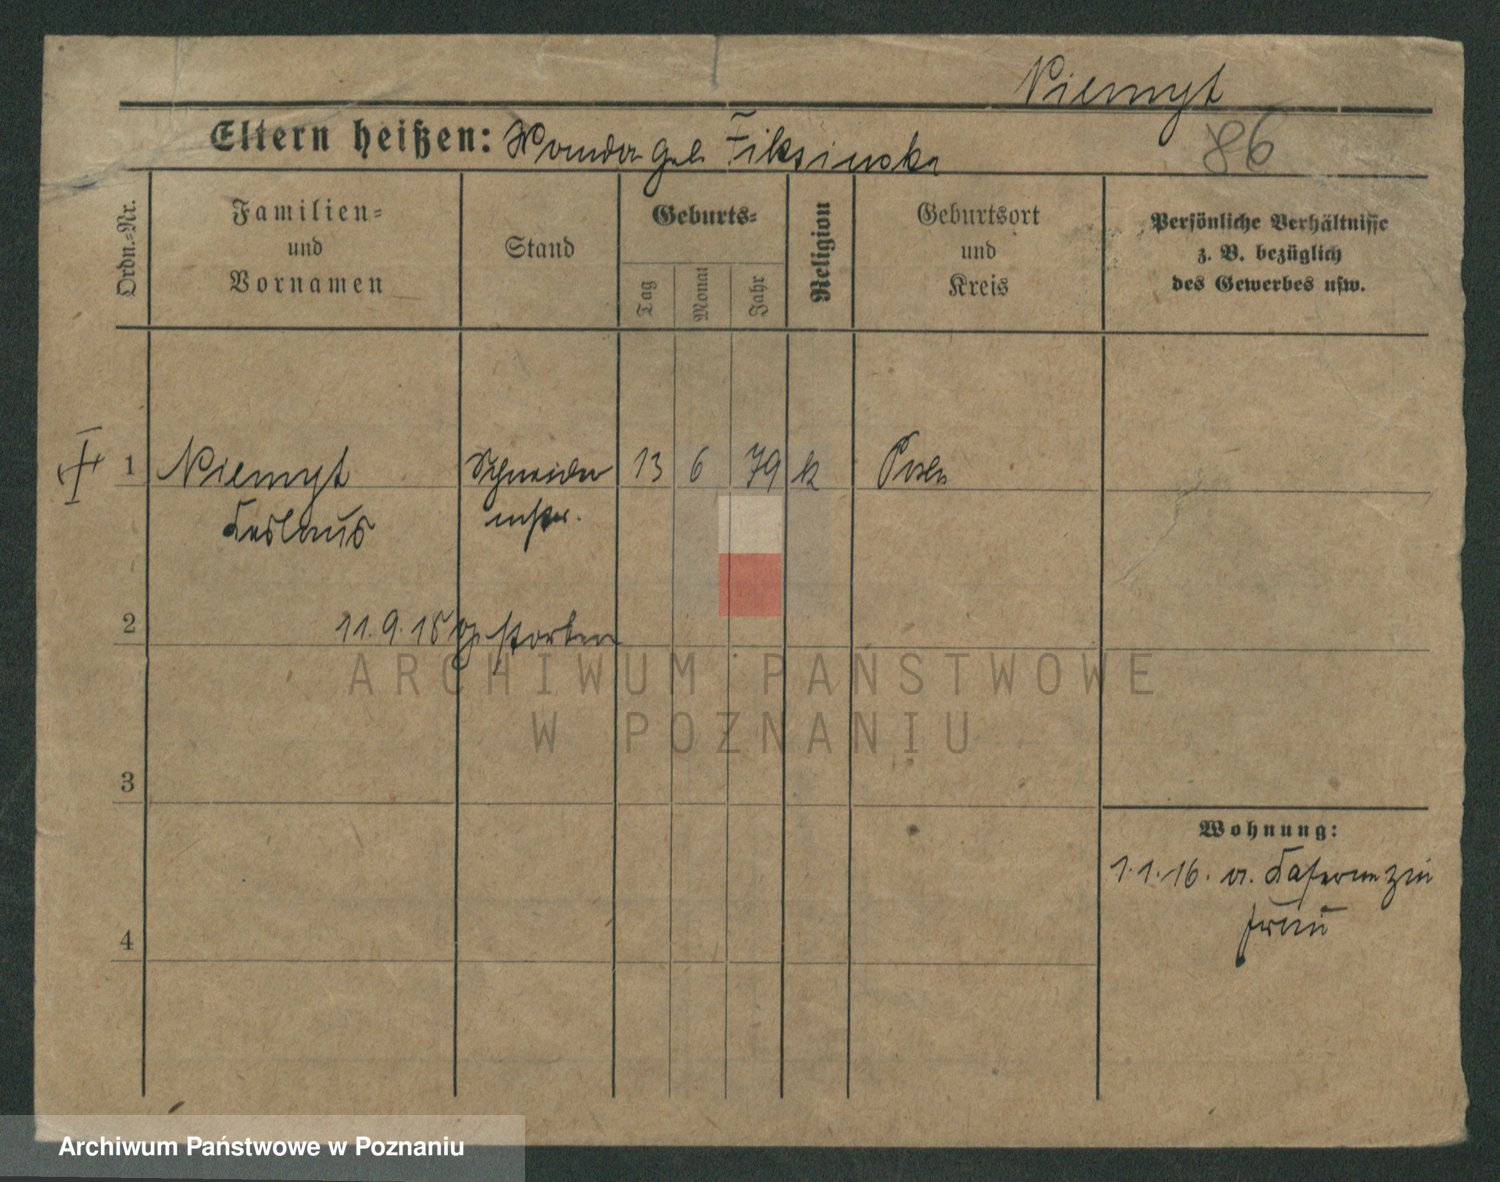 Niemyt
Eltern heißen: Wanda geb. Fiksinska
86
Ordn.=Nr.
Familien=
und
Vornamen
Stand
Geburts=
Tag
Monat
Jahr
Religion
Geburtsort
und
Kreis
Persönliche Verhältnisse
z. B. bezüglich
des Gewerbes usw.
1 Niemyt Schneider 13 6 79 k Posen
mstr.
2 11.9.18 gestorben
ARCHIWUM PAŃSTWOWE
W POZNANIU
3
Wohnung:
1.1.16. v. Kaserne zur
Frau
4
Archiwum Państwowe w Poznaniu